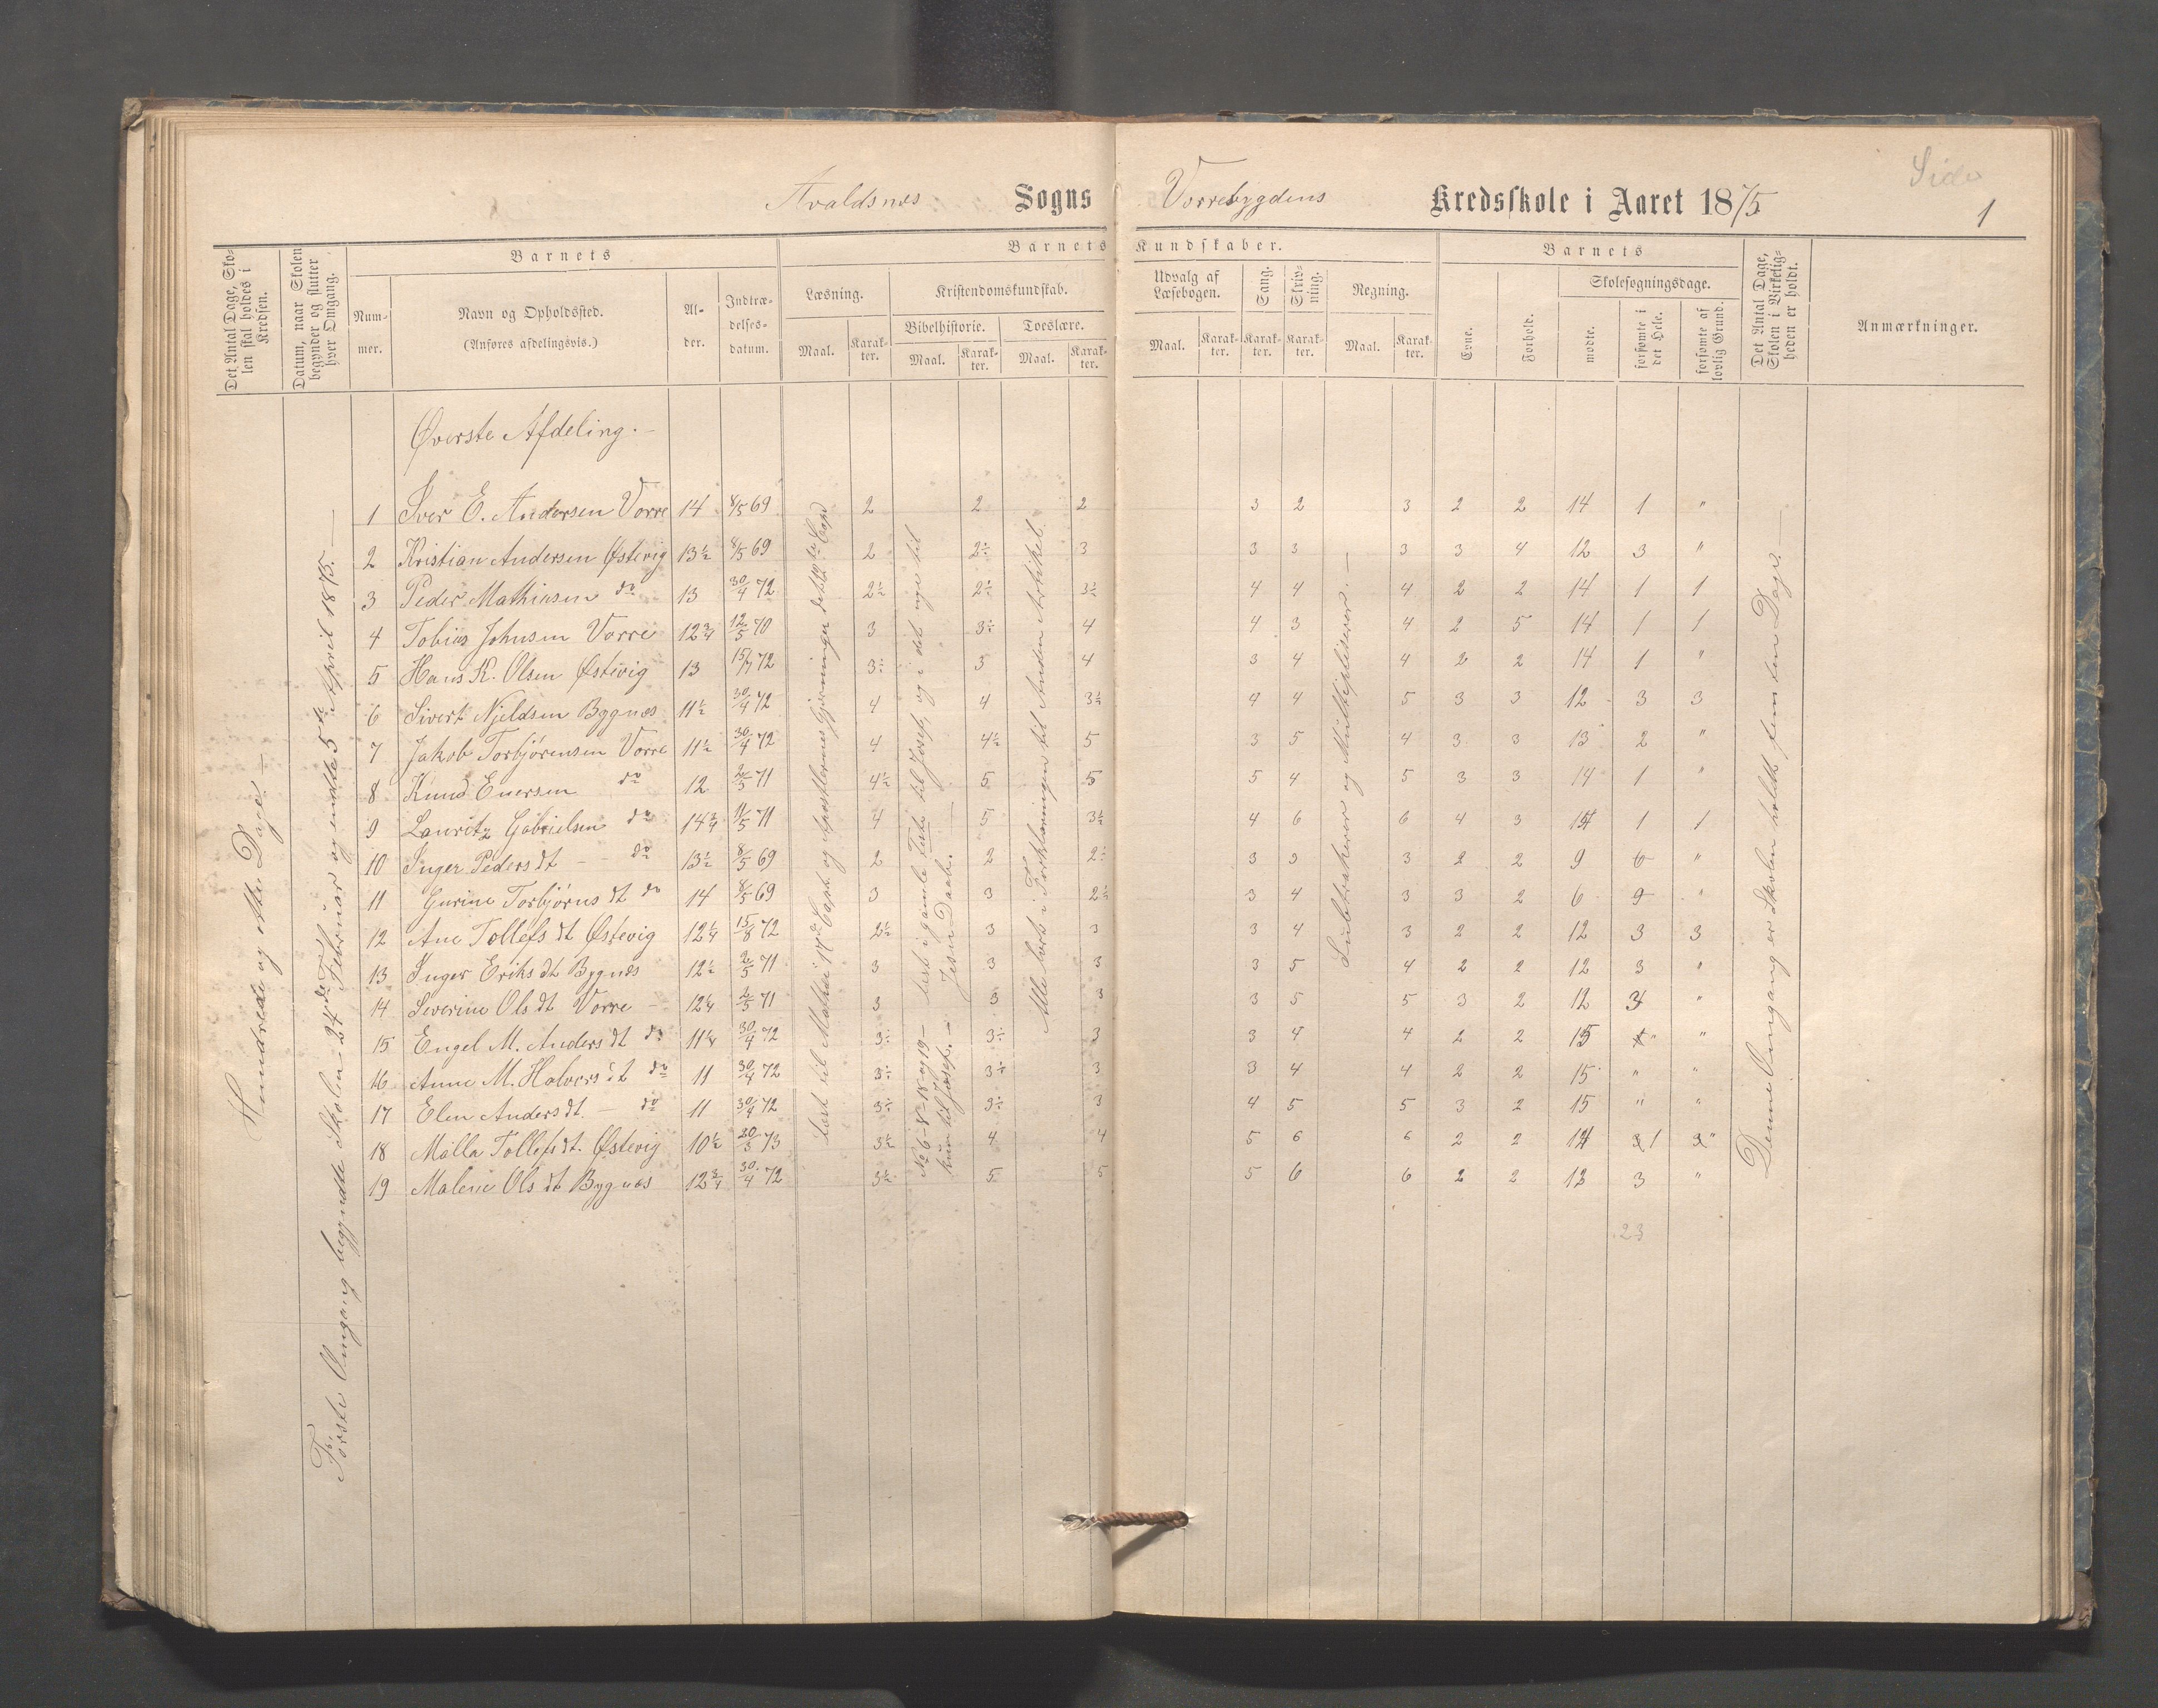 Avaldsnes Sogns Vorrebygdens Kredsskole i Aaret 1875
Side
1
Det Antal Dage, Skolen skal holdes i Kredsen.
Datum, naar Skolen begynder og slutter hver Omgang.
Barnets
Nummer.
Navn og Opholdssted.
(Anføres afdelingsvis.)
Alder.
Indtrædelsesdatum.
Barnets Kundskaber.
Læsning.
Maal.
Karakter.
Kristendomskundskab.
Bibelhistorie.
Maal.
Karakter.
Troeslære.
Maal.
Karakter.
Udvalg af Læsebogen.
Maal.
Karakter.
Sang.
Karakter.
Skrivning.
Karakter.
Regning.
Maal.
Karakter.
Barnets
Evne.
Forhold.
Skolesøgningsdage.
mødte.
forsømte i det Hele.
forsømte af lovlig Grund.
Det Antal Dage, Skolen i Virkeligheden er holdt.
Anmærkninger.
Hundrede og otte Dage.
Første Omgang begyndte Skolen 24de Februar og endte 5te April 1875.
Øverste Afdeling.
1 Iver E. Andersen Vorre 14 8/5 69 2 2 2 3 2 3 2 2 14 1 "
2 Kristian Andersen Østevig 13½ 8/5 69 2 2÷ 3 3 3 3 3 4 12 3 "
3 Peder Mathiesen do 13 30/4 72 2½ 2÷ 3½ 4 4 4 2 2 14 1 1
4 Tobias Johnsen Vorre 12¾ 12/5 70 3 3÷ 4 4 3 4 2 5 14 1 1
5 Hans K. Olsen Østevig 13 15/7 72 3÷ 3 4 3 4 4 2 2 14 1 "
6 Sivert Njeldsen Bygnæs 11½ 30/4 72 4 4 3½ 4 4 5 3 3 12 3 3
7 Jakob Torbjørensen Vorre 11½ 30/4 72 4 4½ 5 3 5 4 3 3 13 2 "
8 Knud Enersen do 12 2/5 71 4½ 5 5 5 4 5 3 3 14 1 "
9 Lauritz Gabrielsen do 14¾ 11/5 71 4 5 3½ 4 6 6 4 3 14 1 1
10 Inger Pedersdt do 13½ 8/5 69 2 2 2÷ 3 3 3 2 2 9 6 "
11 Gurine Torbjørnsdt do 14 8/5 69 3 3 2½ 3 4 3 3 2 6 9 "
12 Ane Tollefsdt Østevig 12¼ 15/8 72 2½ 3 3 3 4 3 2 2 12 3 3
13 Inger Eriksdt Bygnæs 12½ 2/5 71 3 3 3 3 5 4 2 2 12 3 "
14 Severine Olsdt Vorre 12¼ 2/5 71 3 3 3 3 5 5 3 2 12 3 "
15 Engel M. Andersdt do 11¼ 30/4 72 3÷ 3÷ 3 3 4 4 2 2 15 " "
16 Anne M. Halversdt do 11 30/4 72 3÷ 3÷ 3 3 4 4 2 2 15 " "
17 Elen Andersdt. do 11 30/4 72 3÷ 3÷ 3 4 5 5 3 2 15 " "
18 Malla Tollefsdt. Østevig 10½ 20/3 73 3½ 4 4 5 6 6 2 2 14 1 "
19 Malene Olsdt Bygnæs 12¾ 30/4 72 3½ 5 5 5 6 6 2 2 12 3 "
23
Læst til Mathæi 17de Capt. og Apostlernes Gjerninger dets 19de Capt
Læst i gamle Testa. til Josef, og i det nye til Jesu Daab.
No 6-8-18 og 19 kun til Josef.
Alle læst i Forklaringen til Anden Artikel
Subtraherer og Multipliserer.
Denne Omgang er Skolen holdt femten Dage.